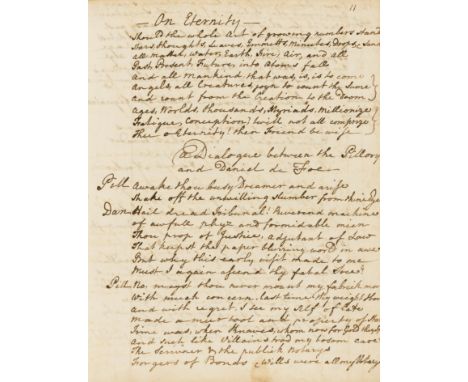 11
On Eternity
Shou'd the whole Art of growing numbers stand
Stars, thoughts, Leaves, Emmetts, Minutes, Drops, & Sand
all matter, water, Earth, Fire, Air, and all
Past, Present, Future, into Atoms fall
And all Mankind that was, is, is to come
Angels all Creatures joyn to count the Sume
and count from the Creation to the Doom
Ages, Worlds Thousands, Myriads, Millionize
Fatigue, Conception) will not all comprize
Thee o Eternity! then Friend be wise
A Dialogue between the Pillory
and Daniel de Foe
Pill Awake thou busy Dreamer and arise
Shake off the unwilling slumber from thine Eye
Dan Hail dread Tribunal! Reverend machine
of awfull phyz and formidable mien
Thou prop of Justice, adjutant of Law
That keepst the paper blurring world in awe
But why this early visit made to me
Must I again ascend thy fatal Tree?
Pill No. mayst thou never mount my fabrik more
With much concern, last time thy weight I bore
and with regret I see my Self of late
made a
Time was, when Knaves, whom now for God they
and such like Villains trod my bosom care
The Scrivener & the publick Notary
Forgers of Bonds, Wills were all my Votary